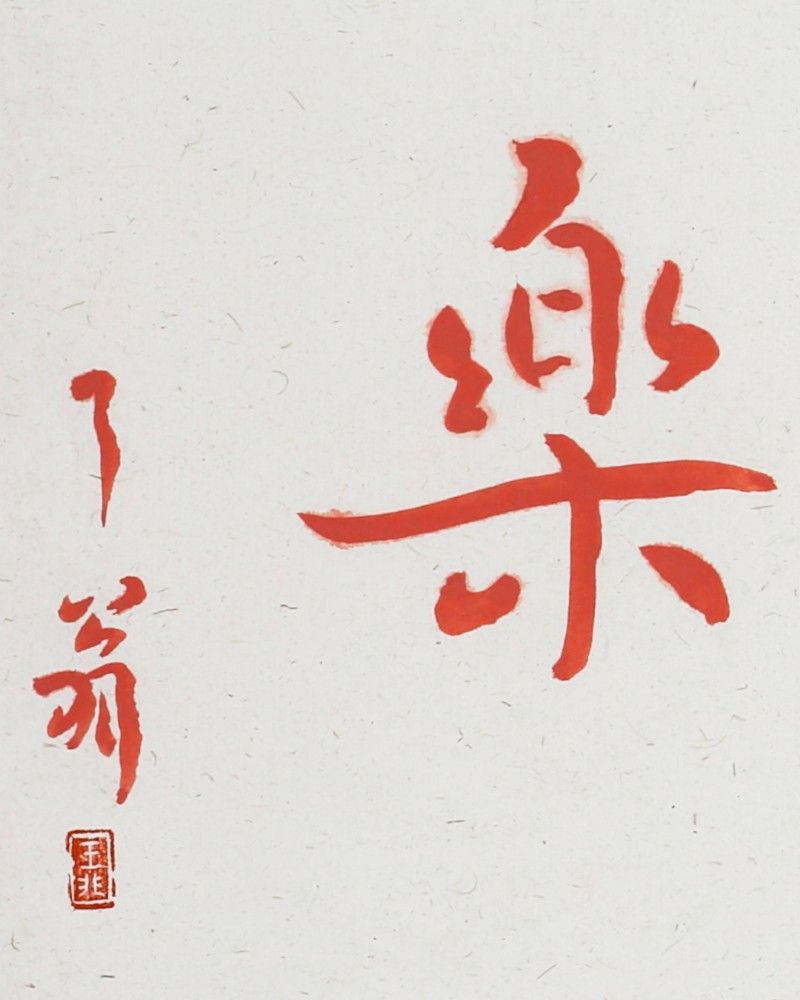 樂
了翁
王兆